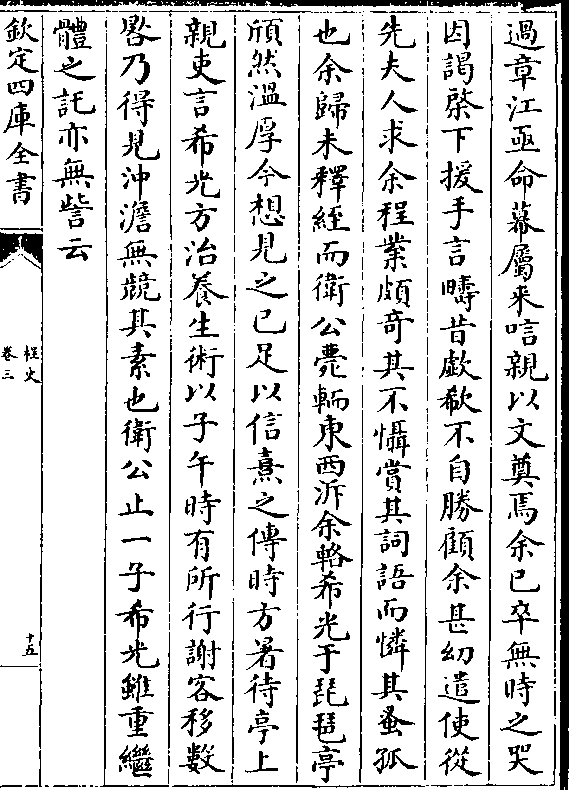 過章江亟命幕屬来唁親以文奠焉余已卒無時之哭
因謁棨下援手言疇昔歔欷不自勝顧余甚幼遣使從
先夫人求余程業頗奇其不懾賞其詞語而憐其蚤孤
也余歸未釋絰而衛公薨輀東西泝余輅希光于琵琶亭
頎然溫厚今想見之已足以信熹之傳時方暑待亭上
親吏言希光方治養生術以子午時有所行謝客移數
晷乃得見沖澹無競其素也衛公止一子希光雖重繼
體之託亦無訾云
欽定四庫全書
桯史
卷三
十五